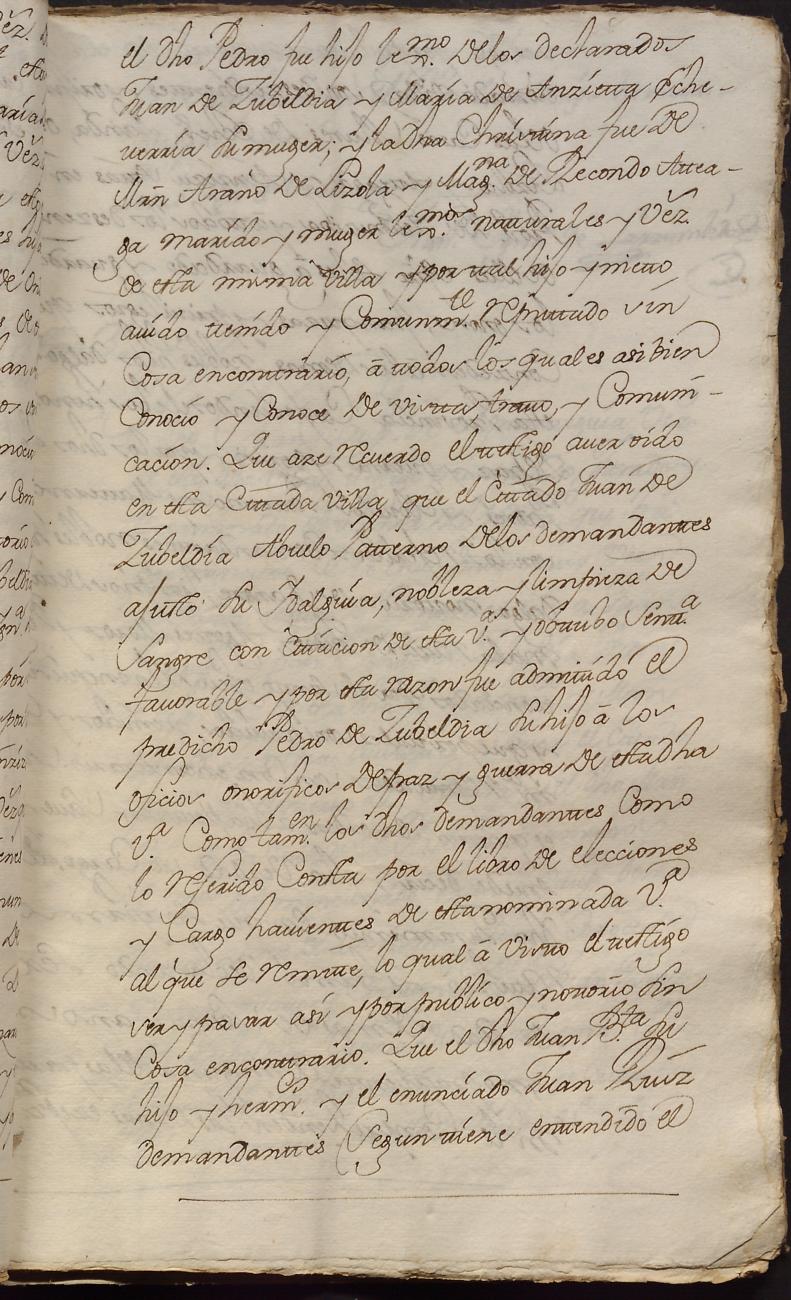 el dho Pedro fue hijo lexmo. Delos declarados
Juan de Zubeldia y María de Anzietta Eche-
uerria su muger; y la dha Christina fue de
Mrn Araño de Lizola y Magna. de Recondo Atea-
ga marido y muger lexmos. naturales y Vez.
de esta misma Villa y por tal hijo y nieto
auido tenido y Comunmte. reputado sin
Cosa encontrario, ā todos los quales asi bien
Conocio y Conoce de vista, trato, y Comuni-
cacion. Que aze recuerdo el testigo auer oido
en esta Citada Villa que el Citado Juan de
Zubeldía Abuelo Paterno delos demandantes
ajusto su Ydalguia, nobleza y limpieza de
Sangre con Citacion de esta Va. y obtubo Senta.
fauorable y por esta razon fue admitido el
predicho Pedro de Zubeldia su hijo ā los
oficios onorificos de paz y guerra de esta dha
Va. Como tamen. los dhos demandantes Como
lo referido Consta por el libro de elecciones
y Cargo hauientes de esta nominada Va.
al que se remite, lo qual ā Visto el testigo
ver y pasar asi y por publico y notorio sin
Cosa encontrario. Que el dho Juan Bta. su
hijo y hermo. y el enunciado Juan Ruiz
demandantes (Segun tiene entendido el